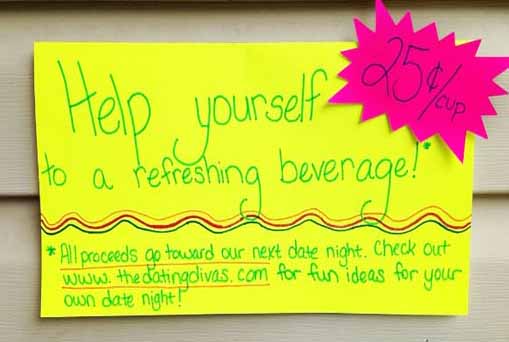 Help yourself
25¢/cup
to a refreshing beverage!*
*All proceeds go toward our next date night. Check out
www.thedatingdivas.com for fun ideas for your
own date night!